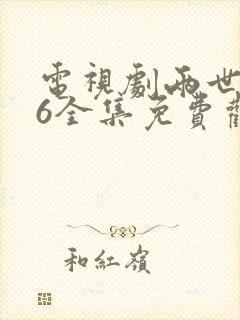 電視劇兩世
6全集免費觀
和紅嶺